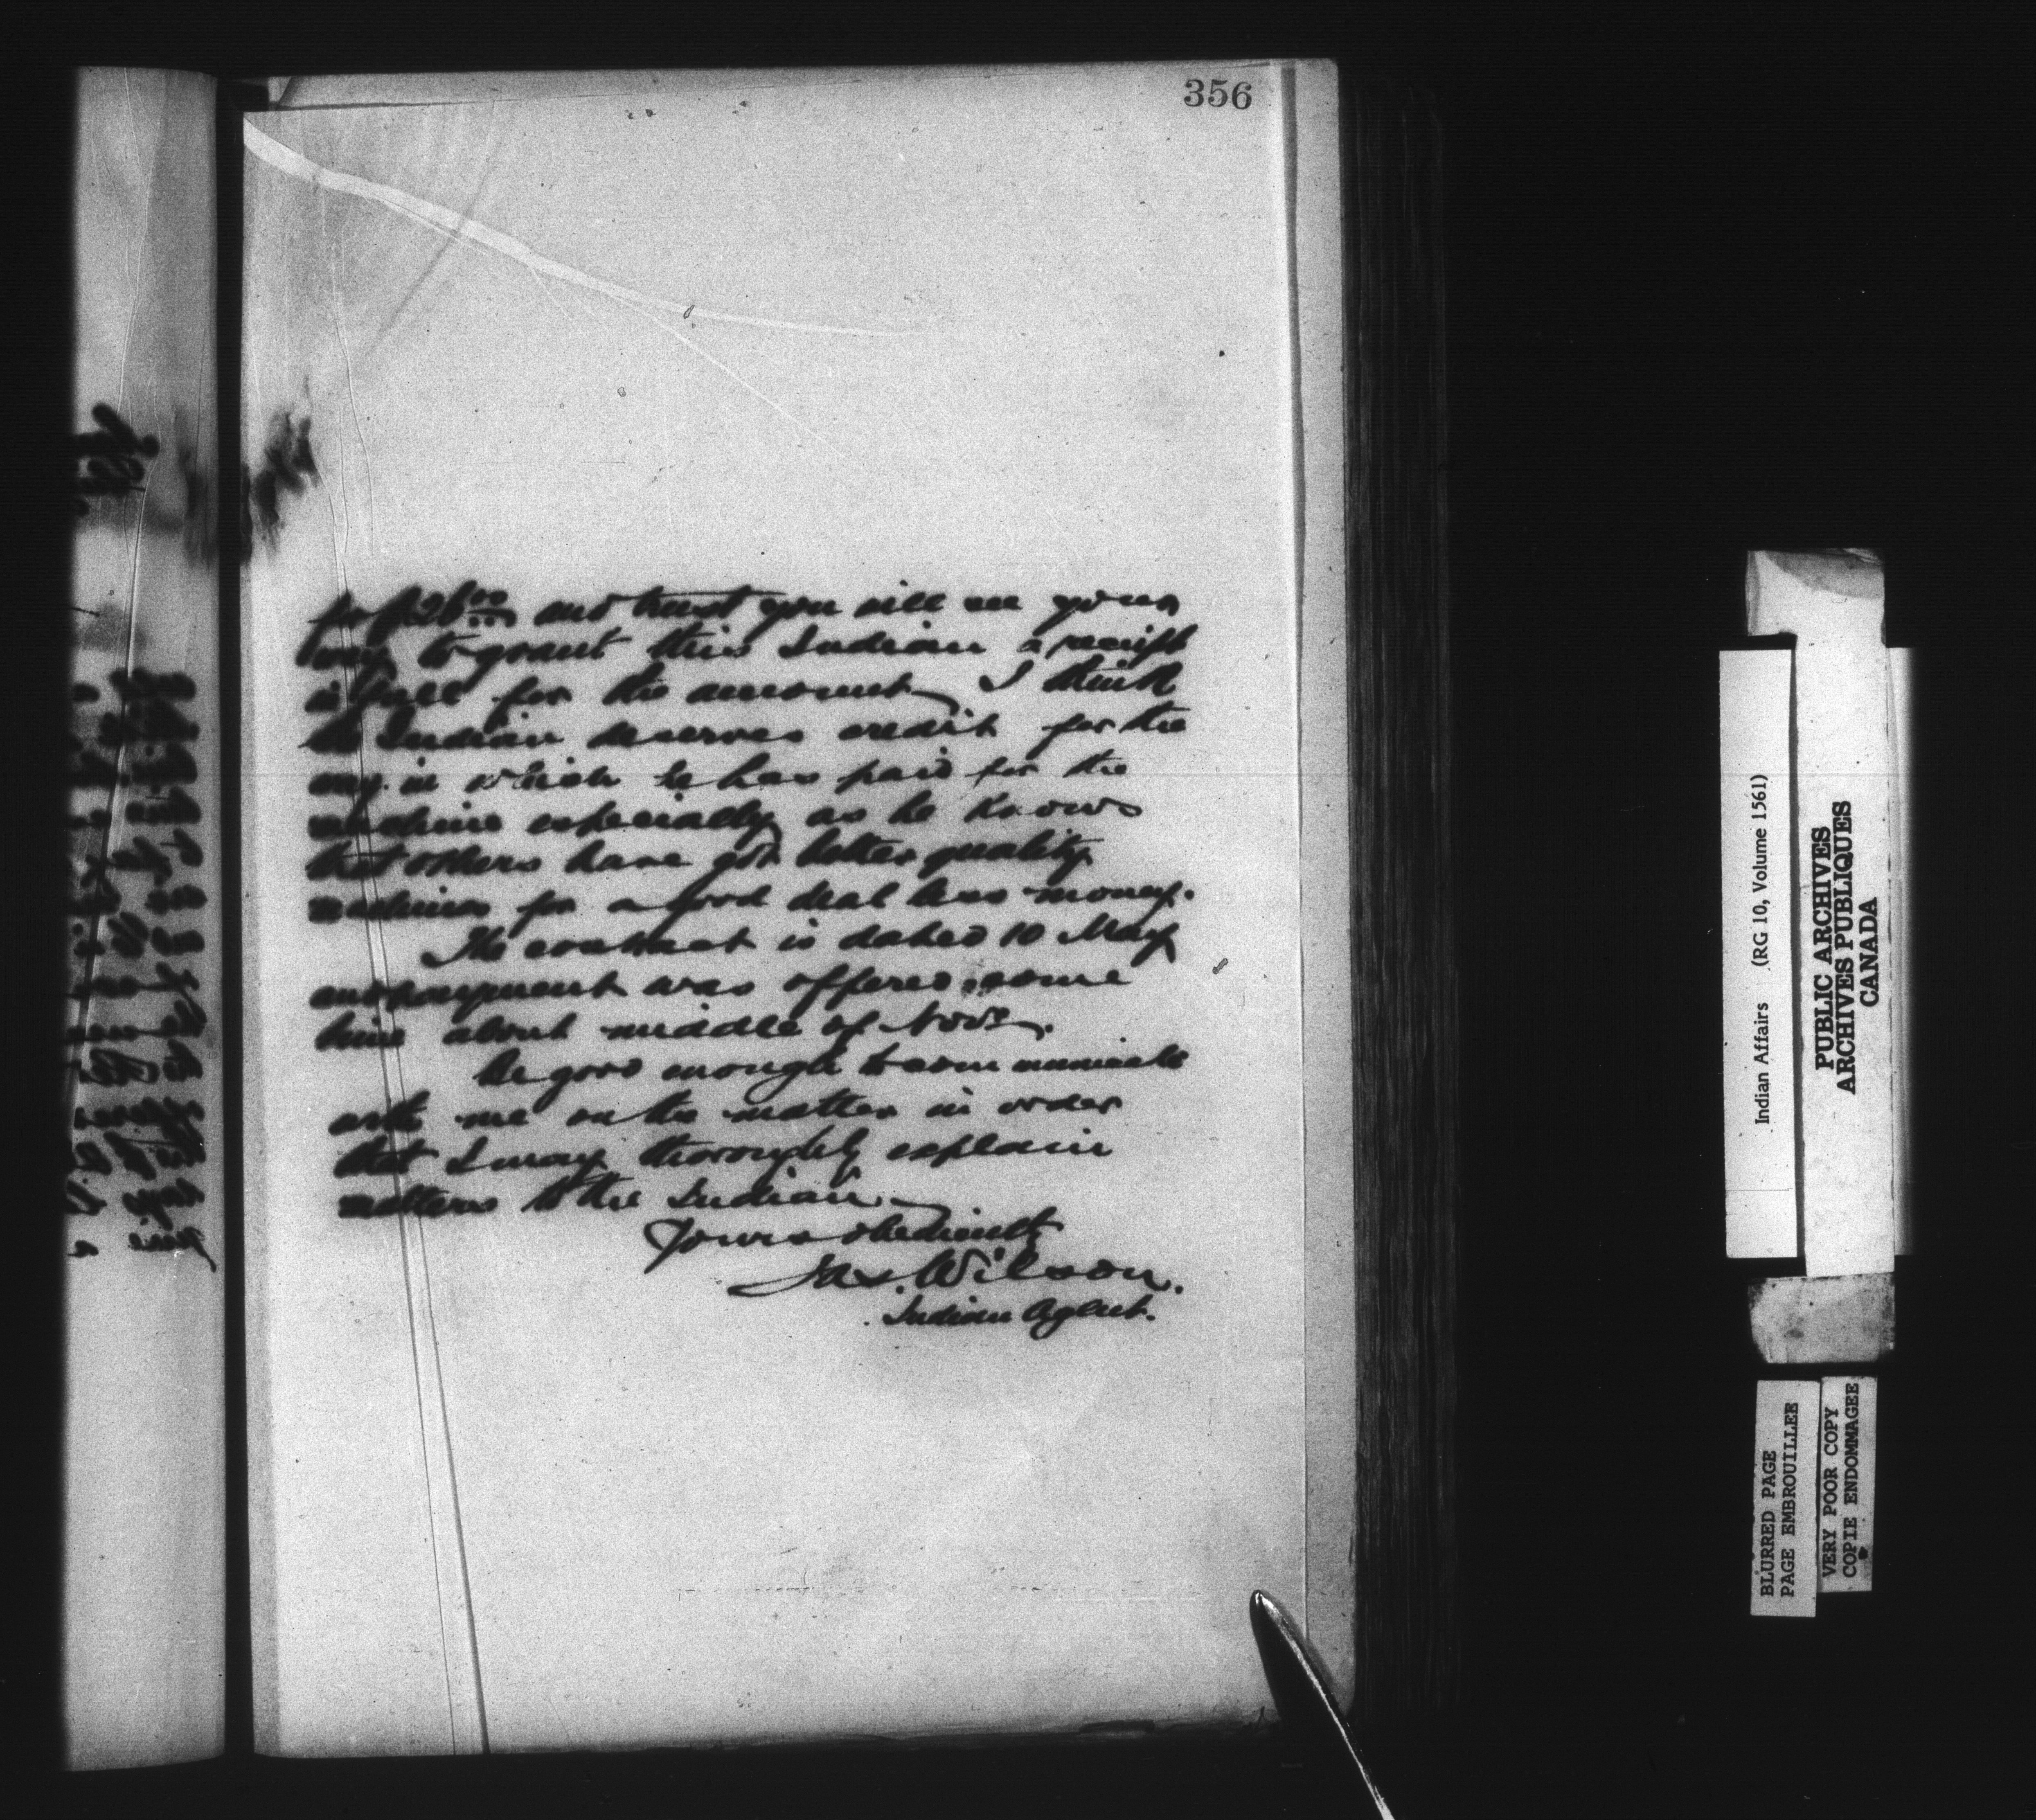 356
for $26.00 and trust you will see your
way to grant this Indian a receipt
in full for the amount. I think
the Indian deserves credit for the
way in which he has paid for the
machine especially as he knows
that others have got better quality
machines for a good deal less money.
The contract is dated 10 May
and payment was offered some
time about middle of Novr.
Be good enough to communicate
with me on the matter in order
that I may thoroughly explain
matters to the Indian
Yours obediently
Jas. Wilson.
Indian Agent.
Indian Affairs (RG 10, Volume 1561)
PUBLIC ARCHIVES
ARCHIVES PUBLIQUES
CANADA
BLURRED PAGE
PAGE EMBROUILLEE
VERY POOR COPY
COPIE ENDOMMAGEE